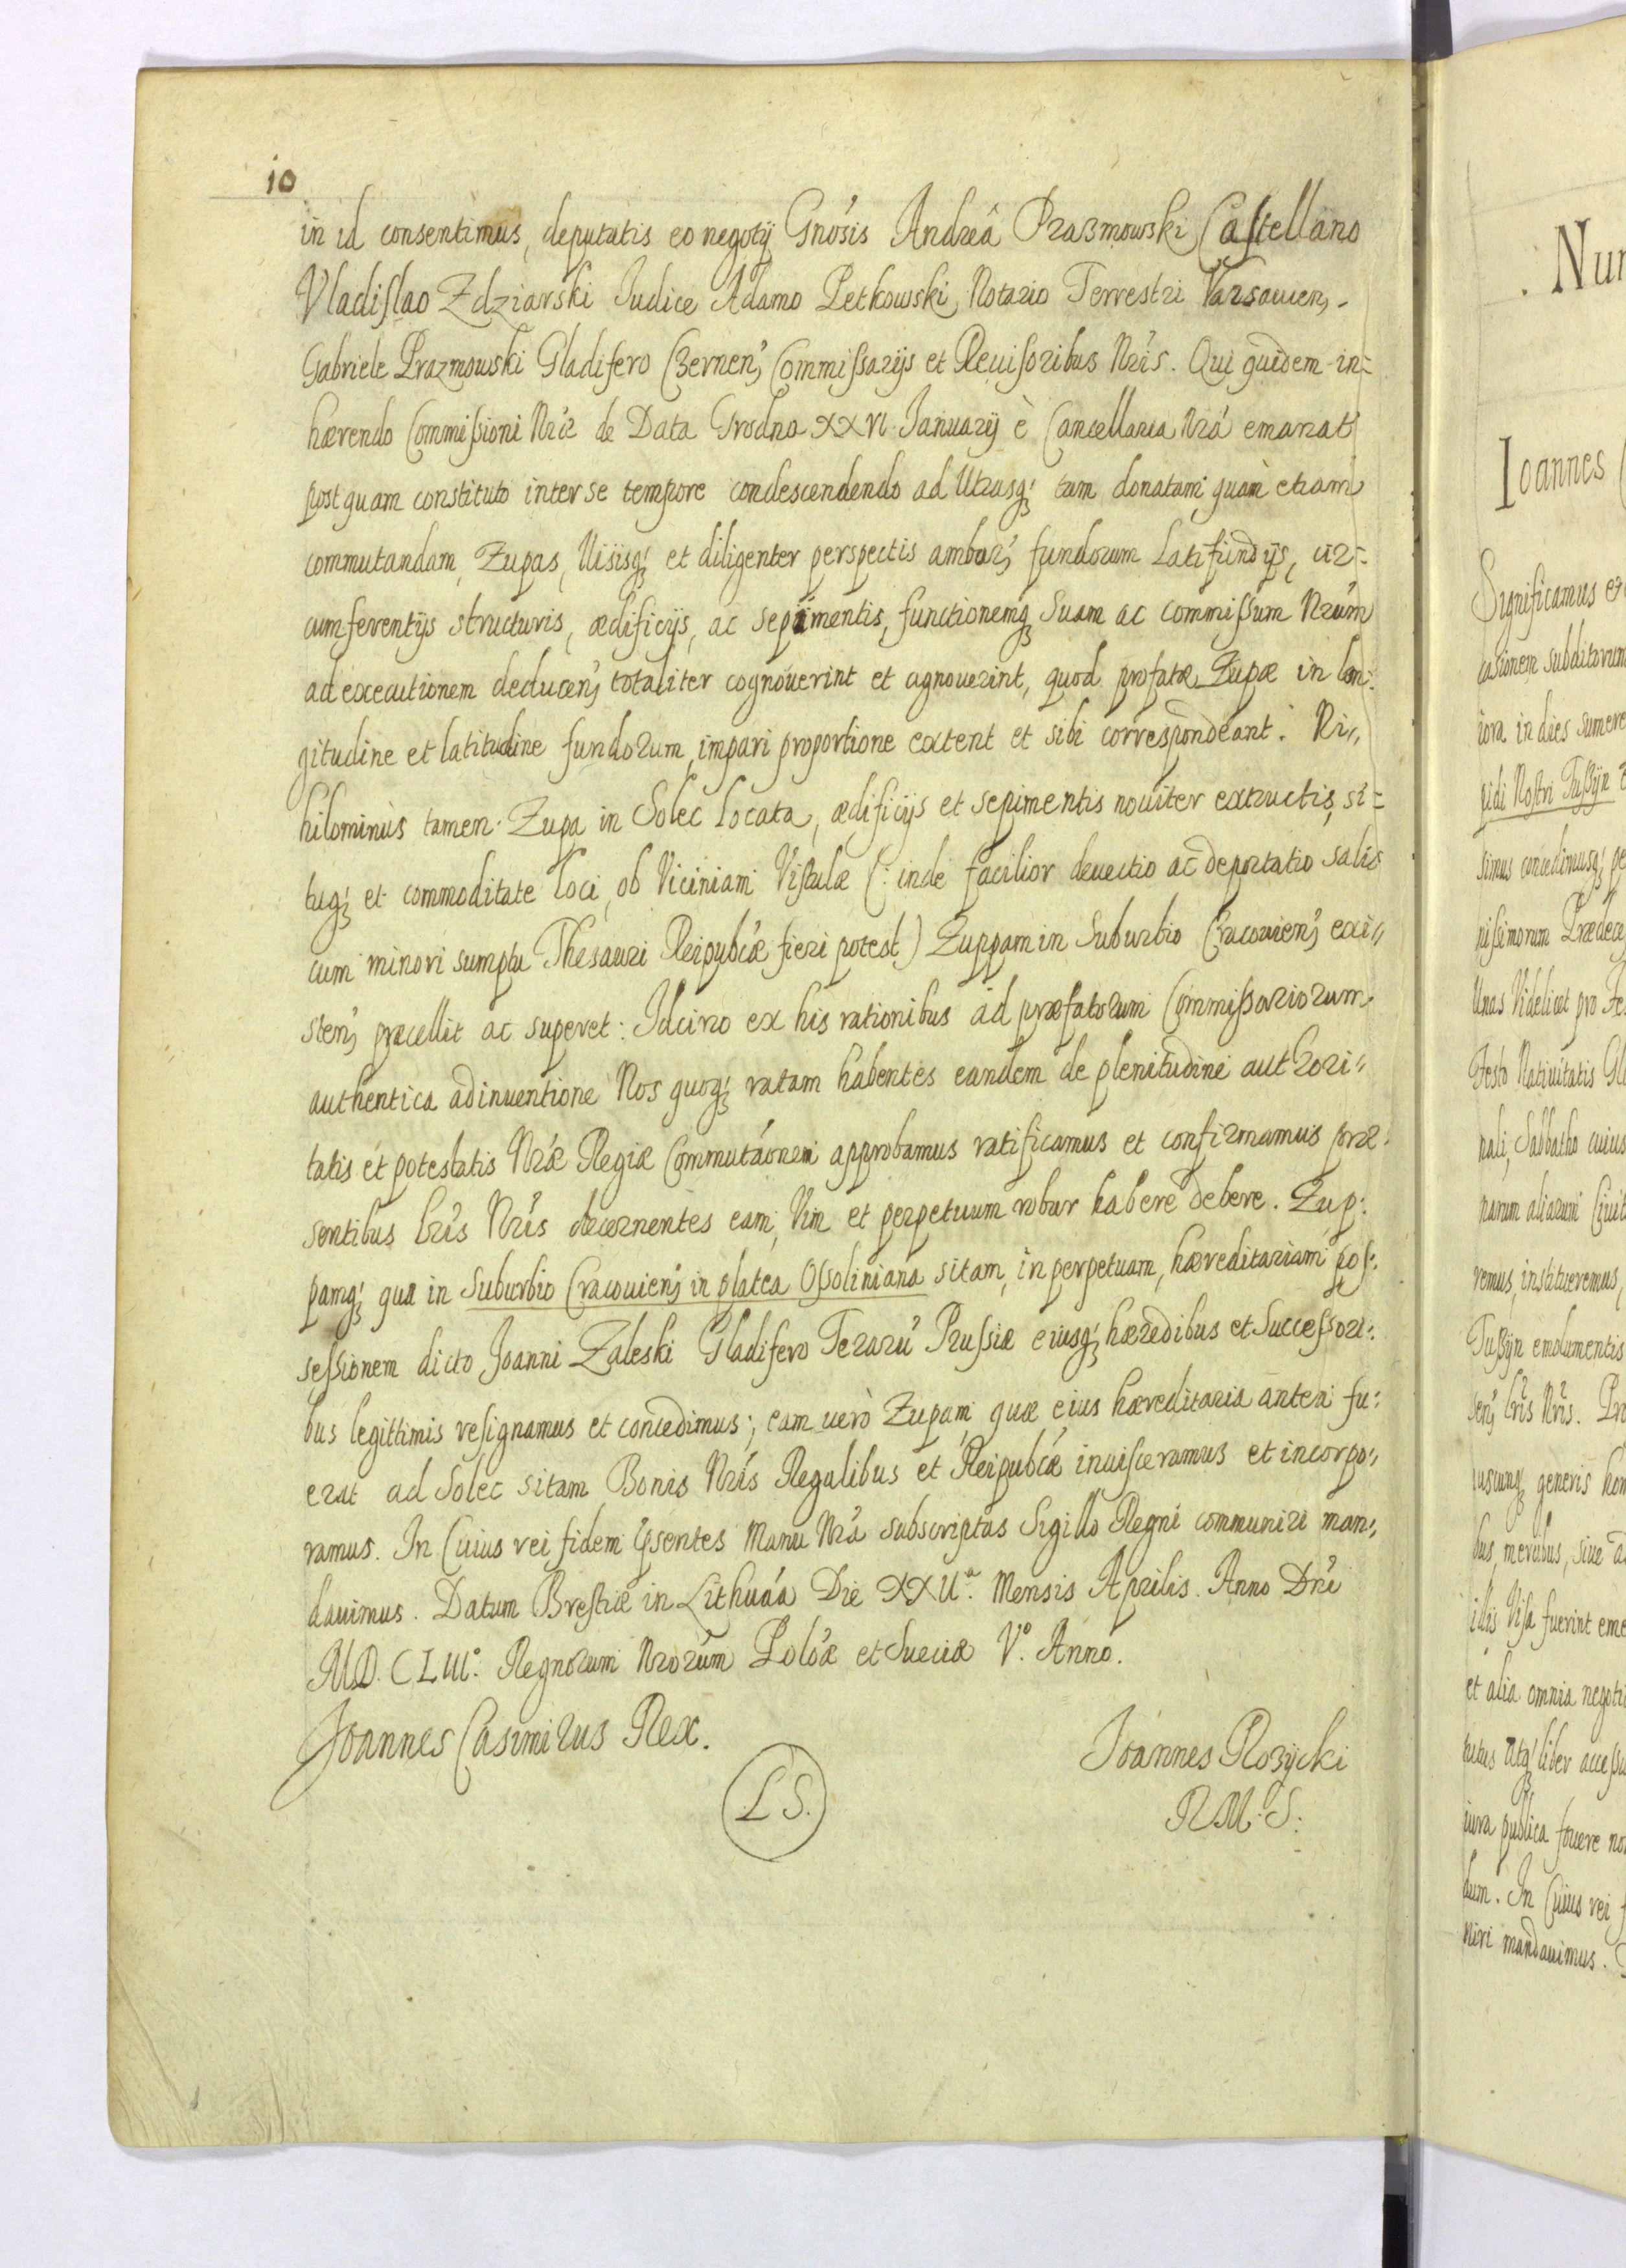 10
in id consentimus, deputatis eo negotij Gnósis Andreâ Prazmowski Castellano
Vladislao Zdziarski Judice Adamo Petkowski, Notario Terrestri Varsavien,
Gabriele Prazmowski Gladifero Czernen, Commissarijs et Revisoribus Nris. Qui quidem in=
hærendo Commissioni Nræ de Data Grodna XXVI Januarij è Cancellaria Nrá emanat
postquam constituto inter se tempore condescendendo ad Utrasq; tam donatam quàm etiam
commutandam, Zupas, Visisq; et diligenter perspectis ambar, fundorum Latifundijs, cir=
cumferentijs structuris, ædificijs, ac sepimentis, functionemq; Suam ac commissum Nrúm
ad executionem deducen, totaliter cognoverint et agnoverint, quod præfatæ Zupæ in lon:
gitudine et latitudine fundorum, impari proportione extent et sibi correspondeant. Ni,,
hilominùs tamen Zupa in Solec locata, ædificijs et sepimentis noviter extructis, si=
tuq; et commoditate loci, ob Viciniam Vistulæ (: inde facilior devectio ac deportatio salis
cum minori sumptu Thesauri Reipubcæ fieri potest) Zuppam in Suburbio Cracovien, exi,,
sten, præcellit ac superet: Idcirco ex his rationibus ad præfatorum Commissariorum
authentica adinventione Nos quoq; ratam habentes eandem de plenitudine authori,,
tatis et potestatis Nræ Regiæ Commutáonem approbamus ratificamus et confirmamus præ:
sentibus lris Nris decernentes eam, Vim et perpetuum robur habere debere. Zup:
pamq; qua in Suburbio Cracovien, in platea Ossoliniana sitam, in perpetuam, hæreditariam pos:
sessionem dicto Joanni Zaleski Gladifero Terarú Prussiæ eiusq; hæredibus et Successori:
bus legittimis resignamus et concedimus; eam verò Zupam, quæ eius hæreditaria antea fu:
erat ad Solec sitam Bonis Nris Regalibus et Reipubcæ invisceramus et incorpo,,
ramus. In Cuius rei fidem psentes Manu Nrá subscriptas Sigillo Regni communiri man,,
davimus. Datum Brestiæ in Lithuáa Die XXV.ª Mensis Aprilis. Anno Dni
M.D.CLIII.º Regnorum Nrorúm Polóæ et Sueciæ V.º Anno.
Joannes Casimirus Rex.
Joannes Rozycki
L.S.
R.M.S:
Nun
Joannes
Significamus et
casionem subditorum
iora in dies sumere
pidi Nostri Tussijn
simus concedimusq; pe
nissimorum Prædece
Unas Videlicet pro Fe
Festo Nativitatis Gl
pali, Sabbatho cuius
narum aliarum Civit
remus, institueremus,
Tussijn emolumentis
sen, lris Nris. Pr
iuscunq; generis hom
bus, mercibus, sive a
illis Visa fuerint eme
et alia omnia negoti
tutus atq; liber accessu
iura publica fovere no
dum. In Cuius rei f
niri mandavimus.